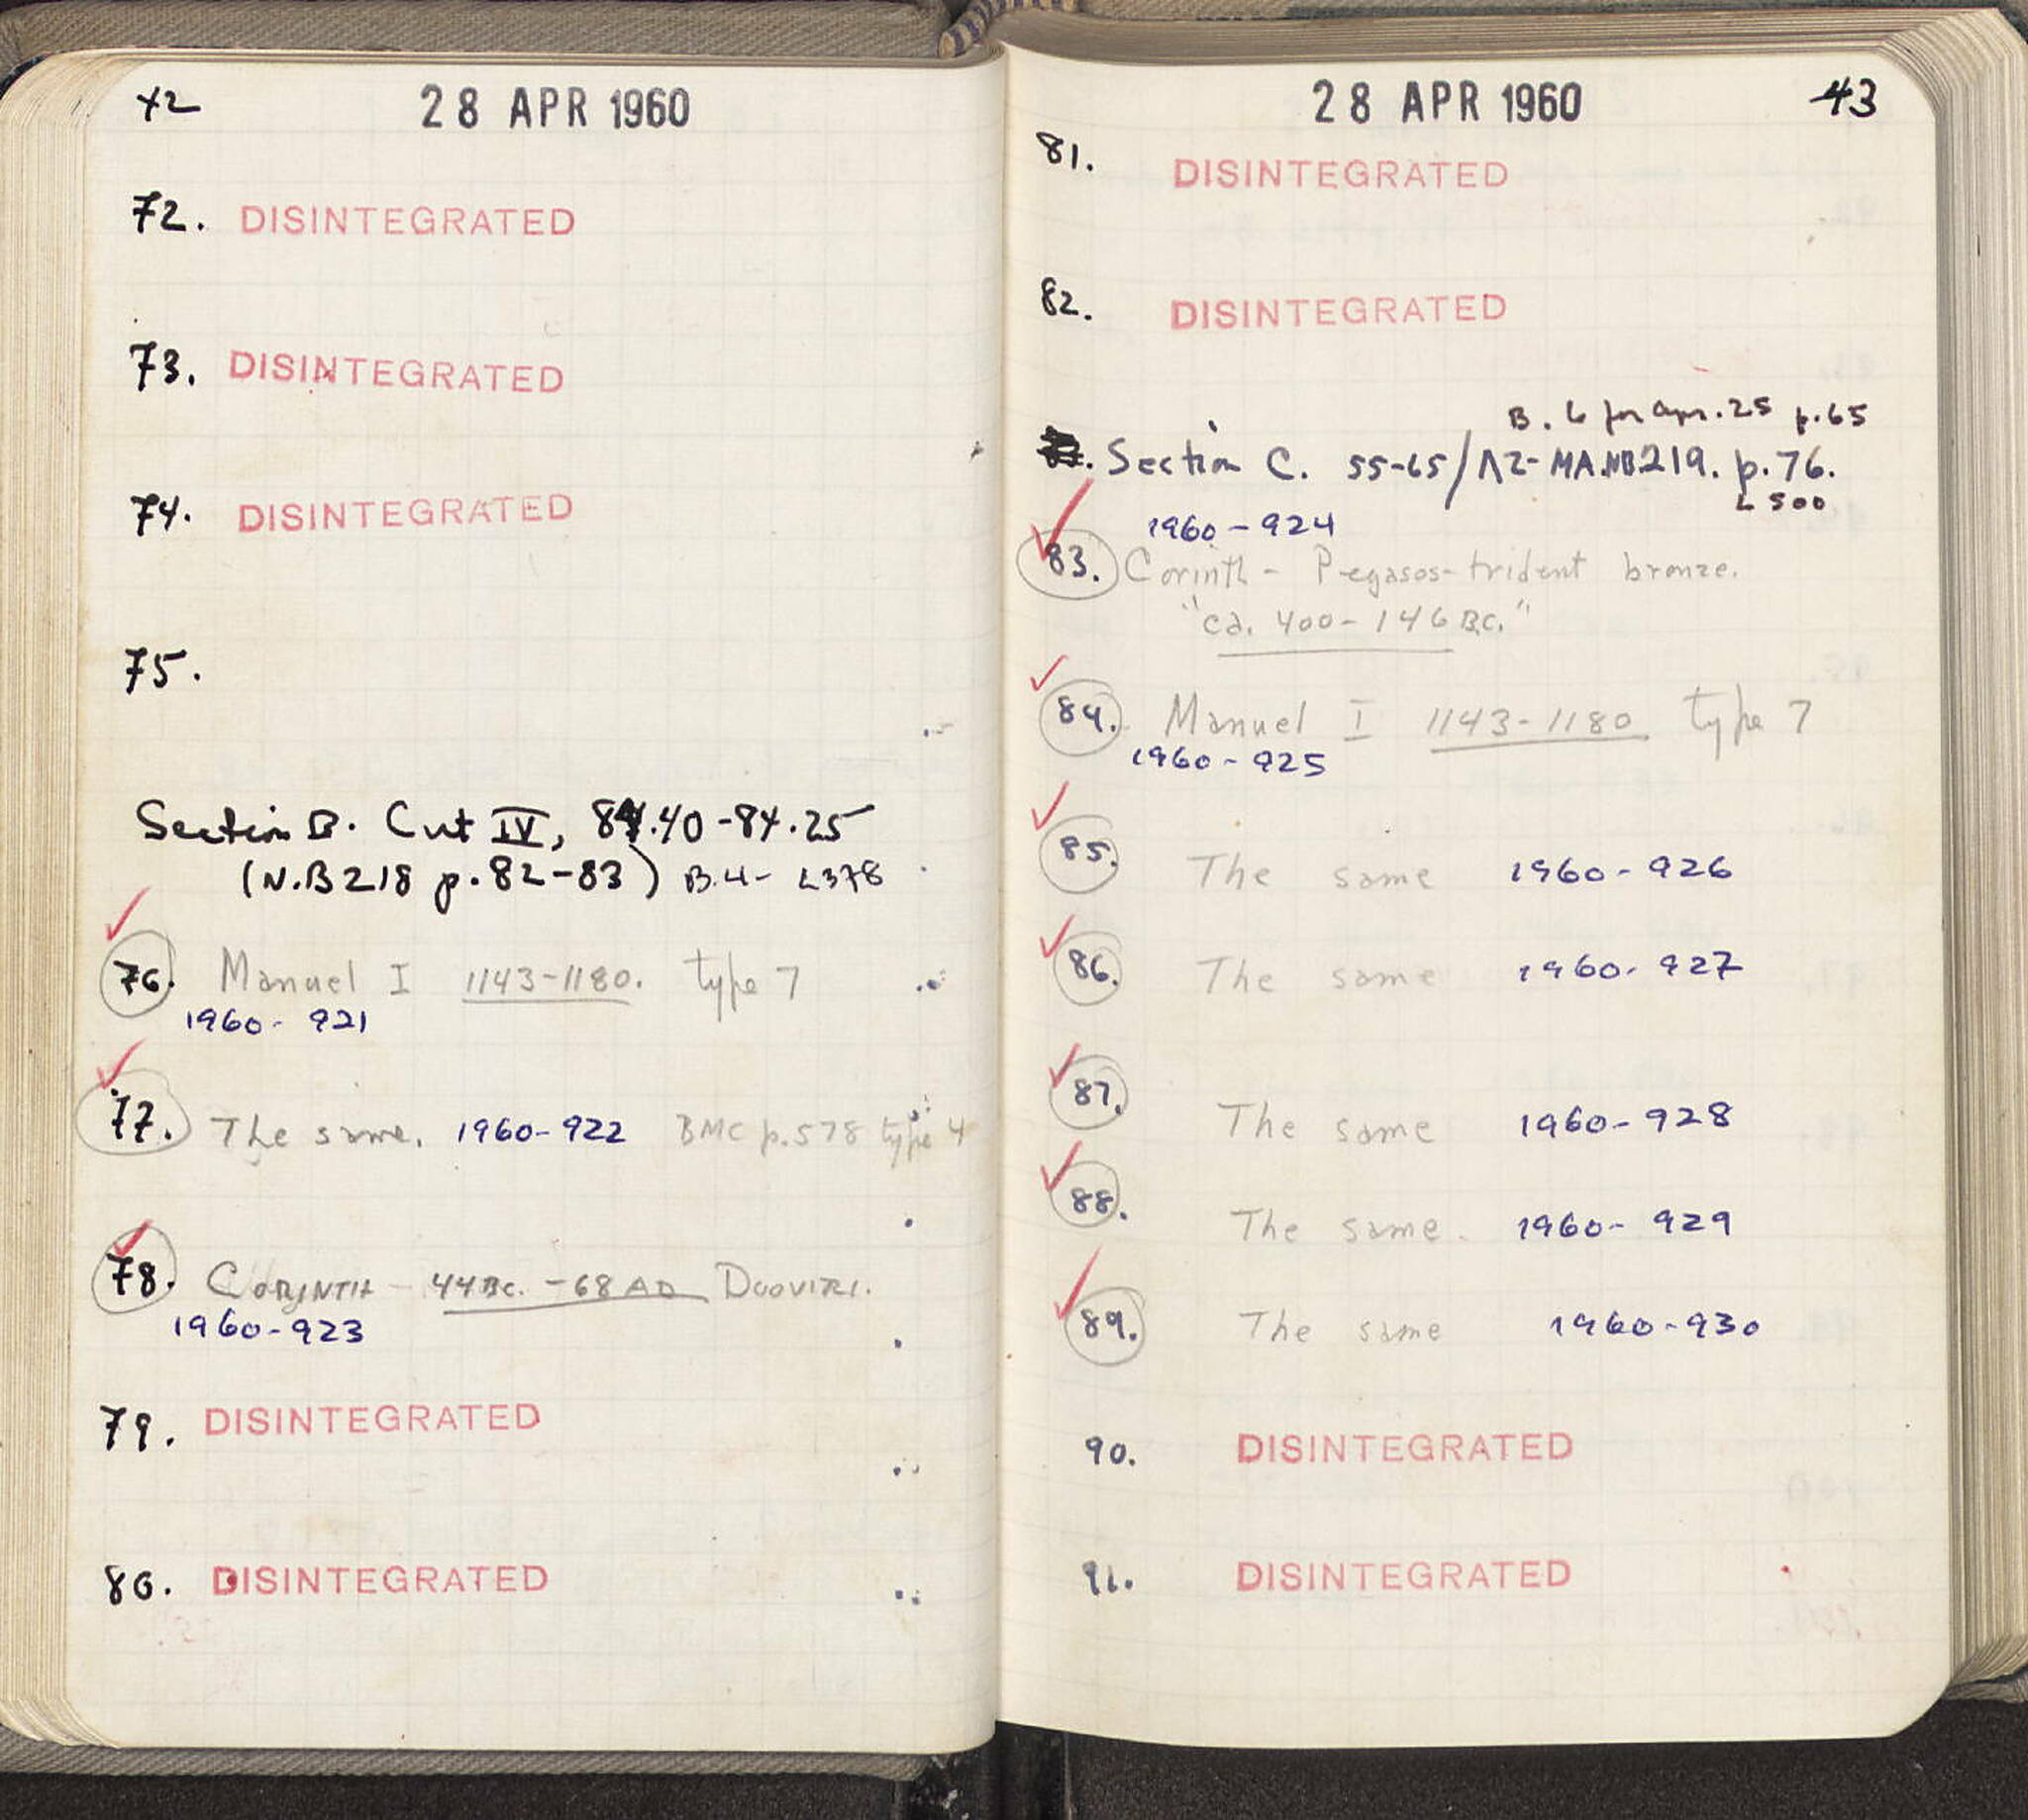 42 28 APR 1960
72. DISINTEGRATED
73. DISINTEGRATED
74. DISINTEGRATED
75.
Section B. Cut IV, 84.40-84.25
(N.B 218 p. 82-83) B.4- L378
76. Manuel I 1143-1180. type 7
1960- 921
77. The same. 1960-922 BMC p.578 type 4
78. CORINTH - 44 BC. - 68 AD DUOVIRI.
1960-923
79. DISINTEGRATED
80. DISINTEGRATED
28 APR 1960 43
81. DISINTEGRATED
82. DISINTEGRATED
B. 6 for Apr. 25 p. 65
Section C. 55-65/ΛΖ-ΜΑ.NB219. p. 76.
L 500
1960-924
83. Corinth - Pegasos-trident bronze.
"ca. 400-146 B.C."
84. Manuel I 1143-1180 type 7
1960-925
85. The same 1960-926
86. The same 1960-927
87. The same 1960-928
88. The same. 1960-929
89. The same 1960-930
90. DISINTEGRATED
91. DISINTEGRATED